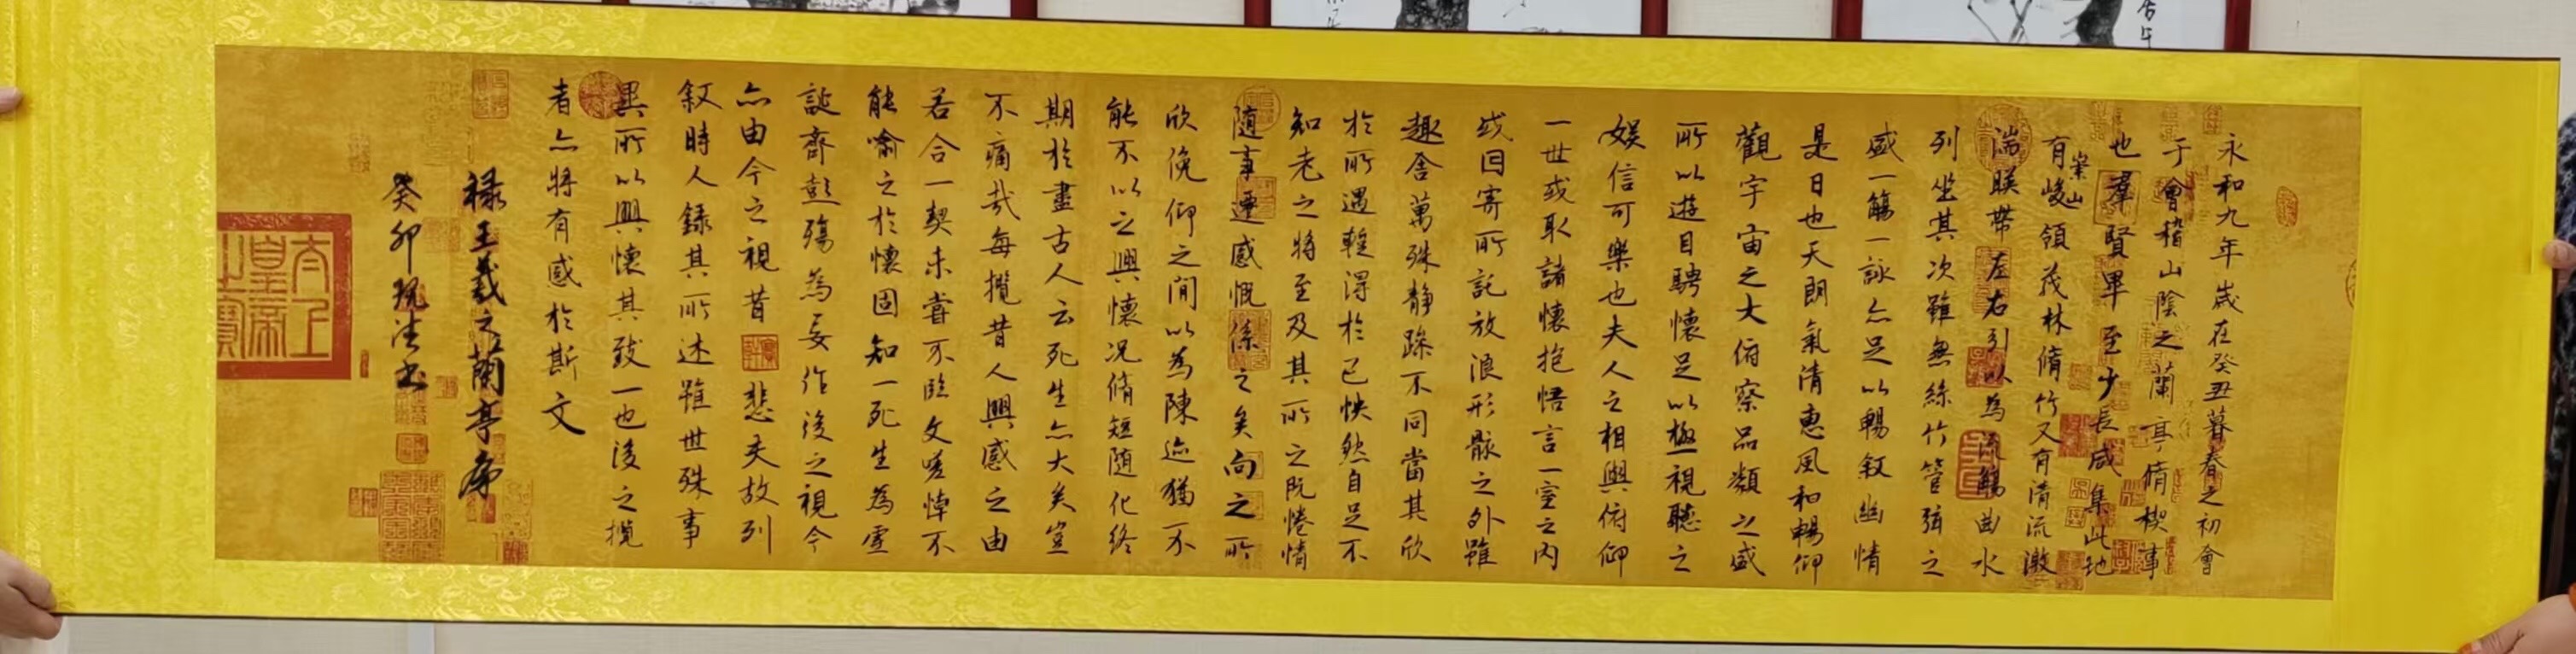 永和九年歲在癸丑暮春之初會
于會稽山陰之蘭亭脩稧事
也羣賢畢至少長咸集此地
有崇山峻領茂林脩竹又有清流激
湍暎帶左右引以為流觴曲水
列坐其次雖無絲竹管弦之
盛一觴一詠亦足以暢敘幽情
是日也天朗氣清惠風和暢仰
觀宇宙之大俯察品類之盛
所以遊目騁懷足以極視聽之
娛信可樂也夫人之相與俯仰
一世或取諸懷抱悟言一室之內
或因寄所託放浪形骸之外雖
趣舍萬殊静躁不同當其欣
於所遇輊得於己怏然自足不
知老之將至及其所之既惓情
随事遷感慨係之矣向之所
欣俛仰之間以為陳迹猶不
能不以之興懷況脩短随化終
期於盡古人云死生亦大矣豈
不痛哉每攬昔人興感之由
若合一契未嘗不臨文嗟悼不
能喻之於懷固知一死生為虛
誕齊彭殤為妄作後之視今
亦由今之視昔悲夫故列
敘時人錄其所述雖世殊事
異所以興懷其致一也後之攬
者亦將有感於斯文
禄王羲之蘭亭序
癸卯
太上皇帝之寶